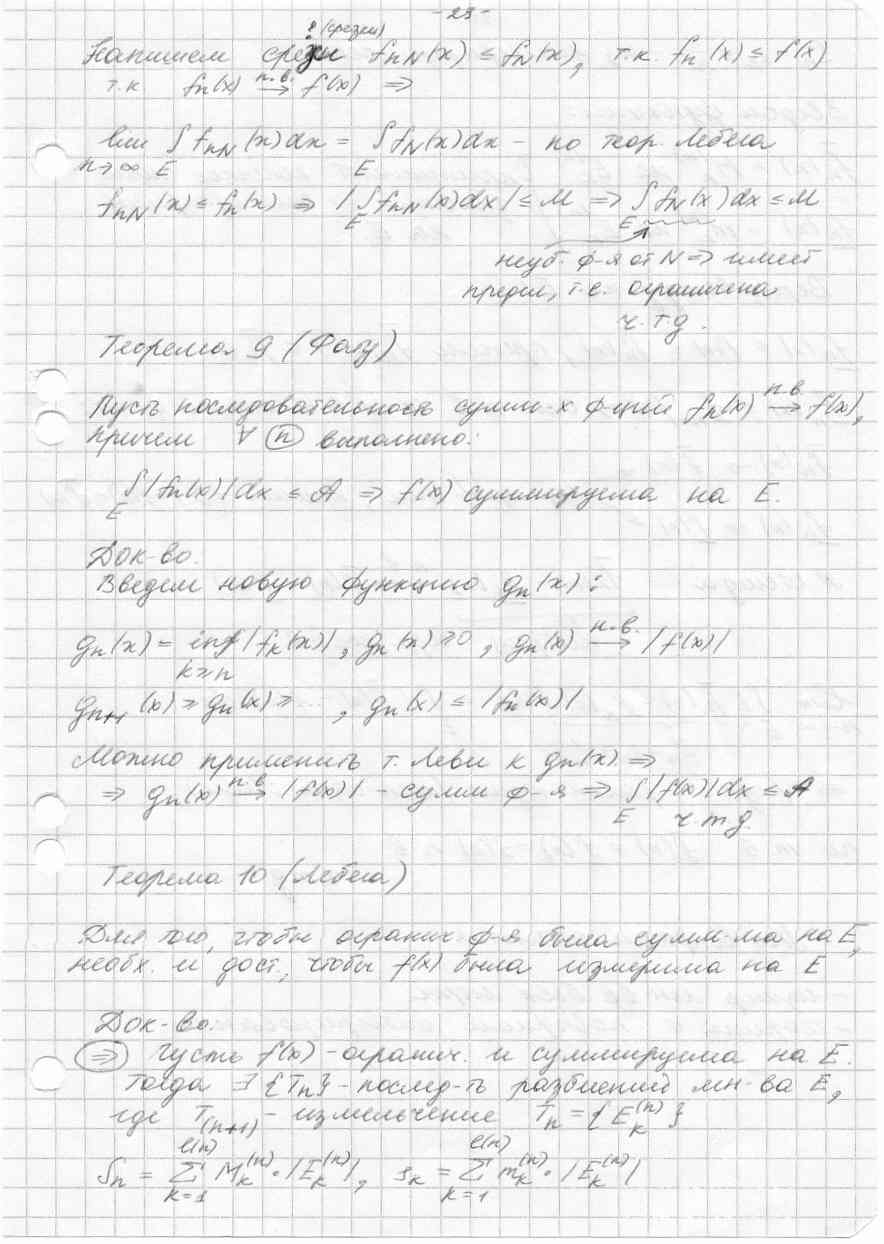 - 29 -
? (срезки)
Напишем срезки f_{nN}(x) ≤ f_N(x), т.к. f_n(x) ≤ f(x)
т.к. f_n(x) \xrightarrow{п.в.} f(x) ⇒
lim_{n→∞} ∫_E f_{nN}(x)dx = ∫_E f_N(x)dx - по теор. Лебега
f_{nN}(x) ≤ f_n(x) ⇒ |∫_E f_{nN}(x)dx| ≤ M ⇒ ∫_E f_N(x)dx ≤ M
неуб. ф-я от N ⇒ имеет
предел, т.е. ограничена
ч.т.д.
Теорема 9 (Фату)
Пусть последовательность сумм-х ф-ций f_n(x) \xrightarrow{п.в.} f(x),
причем ∀ n выполнено:
∫_E |f_n(x)|dx ≤ A ⇒ f(x) суммируема на E.
Док-во.
Введем новую функцию g_n(x):
g_n(x) = inf_{k≥n} |f_k(x)|, g_n(x) ≥ 0, g_n(x) \xrightarrow{п.в.} |f(x)|
g_{n+1}(x) ≥ g_n(x) ≥ ...., g_n(x) ≤ |f_n(x)|
Можно применить т. Леви к g_n(x) ⇒
⇒ g_n(x) \xrightarrow{п.в.} |f(x)| - сумм ф-я ⇒ ∫_E |f(x)|dx ≤ A
ч.т.д.
Теорема 10 (Лебега)
Для того, чтобы огранич ф-я была сумм-ма на E,
необх. и дост., чтобы f(x) была измерима на E
Док-во:
⇒ Пусть f(x) - огранич. и суммируема на E.
Тогда ∃ {T_n} - послед-ть разбиений мн-ва E,
где T_{(n+1)} - измельчение T_n = {E_k^{(n)}}
S_n = ∑_{k=1}^{l(n)} M_k^{(n)} · |E_k^{(n)}|, s_k = ∑_{k=1}^{l(n)} m_k^{(n)} · |E_k^{(n)}|